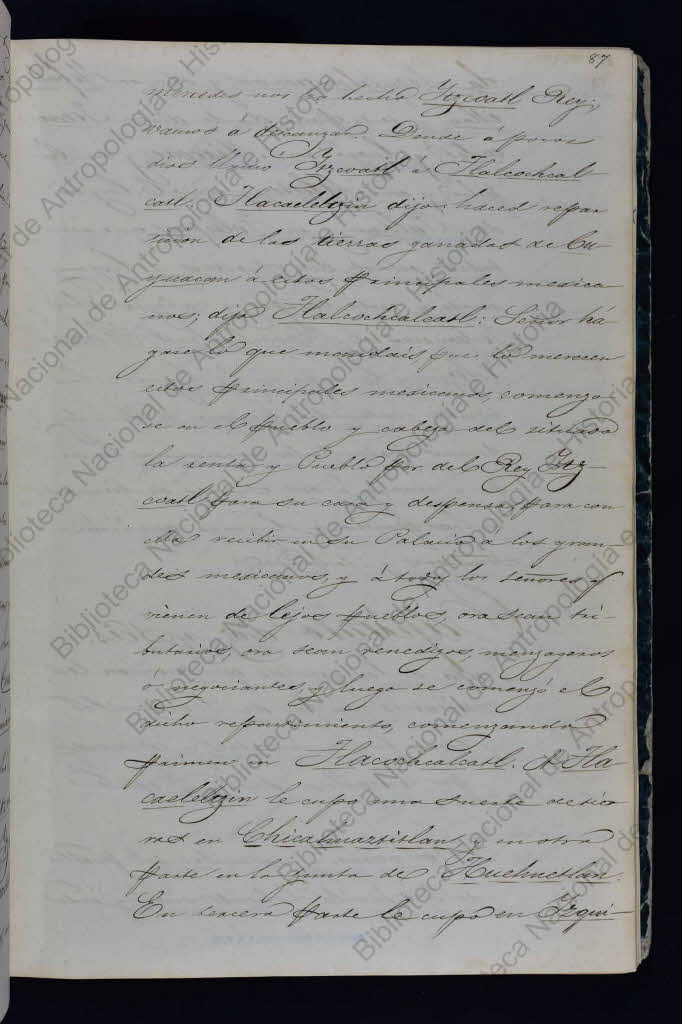 87
mercedes nos ha hecho Ytzcoatl Rey;
vamos á descanzar. Dende á pocos
dias llamó Ytzcoatl á Tlalcochcal
catl. Tlacaeleltzin dijo: haced repar
ticion de las tierras ganadas de Cu-
yuacan á estos principales mexica
nos; dijo Tlalcochcalcatl: Señor há-
gase lo que mandais, pues lo merecen
estos principales mexicanos, comenzo-
se en el pueblo y cabeza del
la renta y Pueblo por del Rey Ytz-
coatl para su casa y despensa, para con
ello recibir en su Palacio á los gran-
des mexicanos, y á todos los señores q
vienen de lejos pueblos, ora sean tri-
butarios, ora sean venedizos, menzageros
ó negociantes, y luego se comenzó el
dicho repartimiento, comenzando
primero en Tlacochcalcatl. A Tla
caeleltzin le cupo una suerte de tier
ras en Chicahuaztitlan y en otra
parte en la junta de Huehuetlan.
En tercera parte le cupo en Yzqui-
Biblioteca Nacional de Antropología e Historia